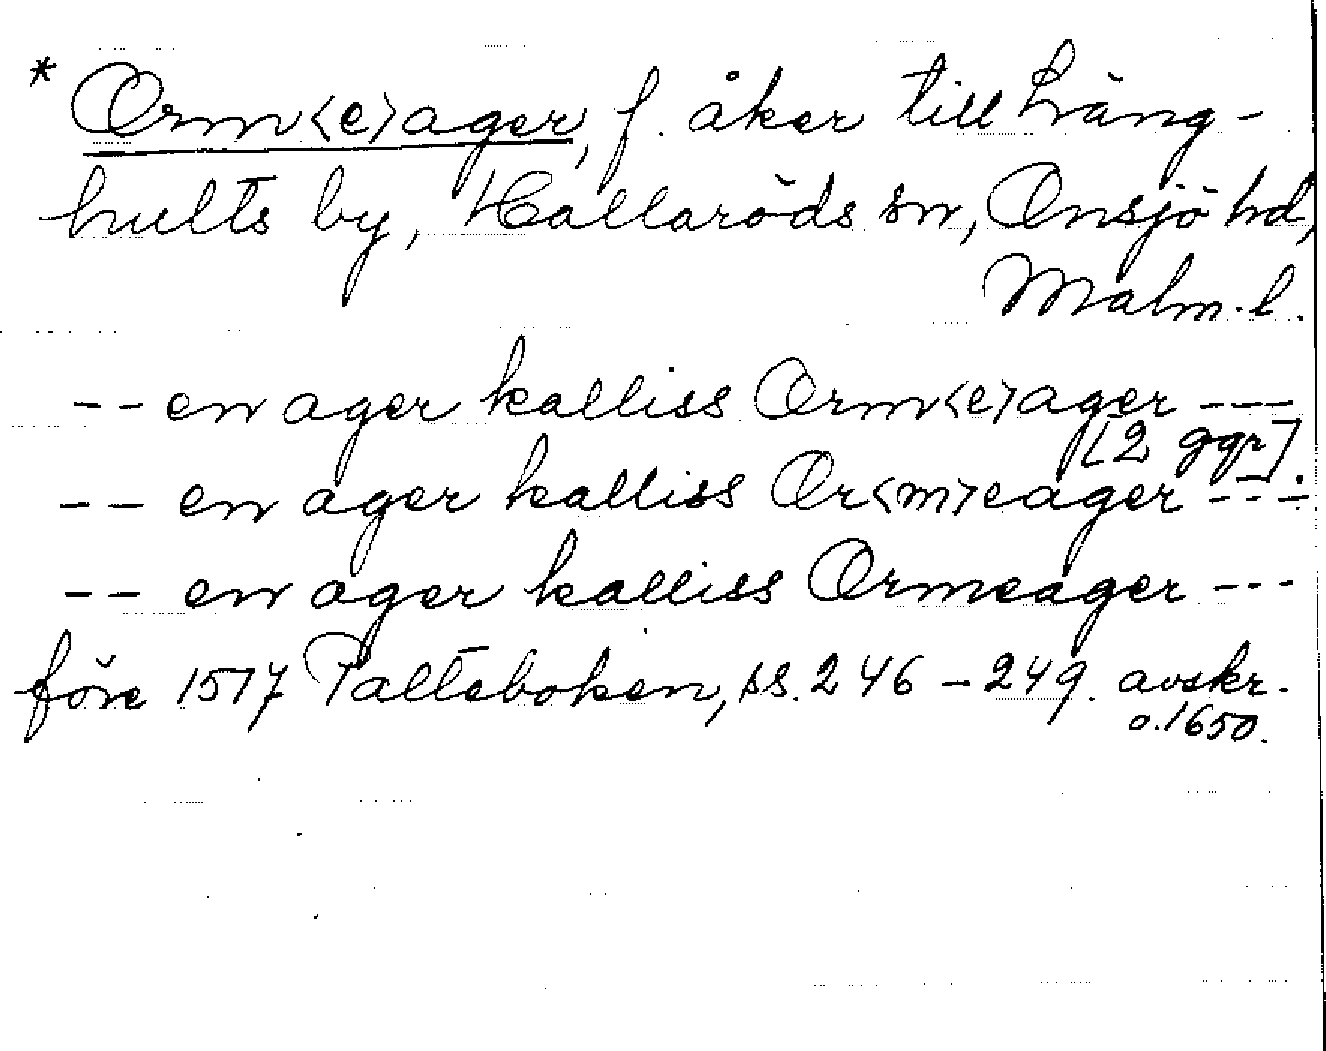 * Orm<e>ager, f. åker till Lång-
hults by, Hallaröds sn, Onsjö hd,
Malm. l.
-- en ager kalliss Orm<e>ager ---
[2 ggr].
-- en ager kalliss Or<m>eager ---
-- en ager kalliss Ormeager ---
före 1517 Palteboken, ss. 246-249. avskr.
o. 1650.